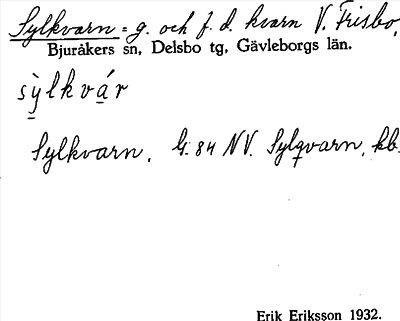 Sylkvarn = g. och f. d. kvarn V. Frisbo,
Bjuråkers sn, Delsbo tg, Gävleborgs län.
sỳlkvár
Sylkvarn. G. 84 NV. Sylqvarn, kb.
Erik Eriksson 1932.